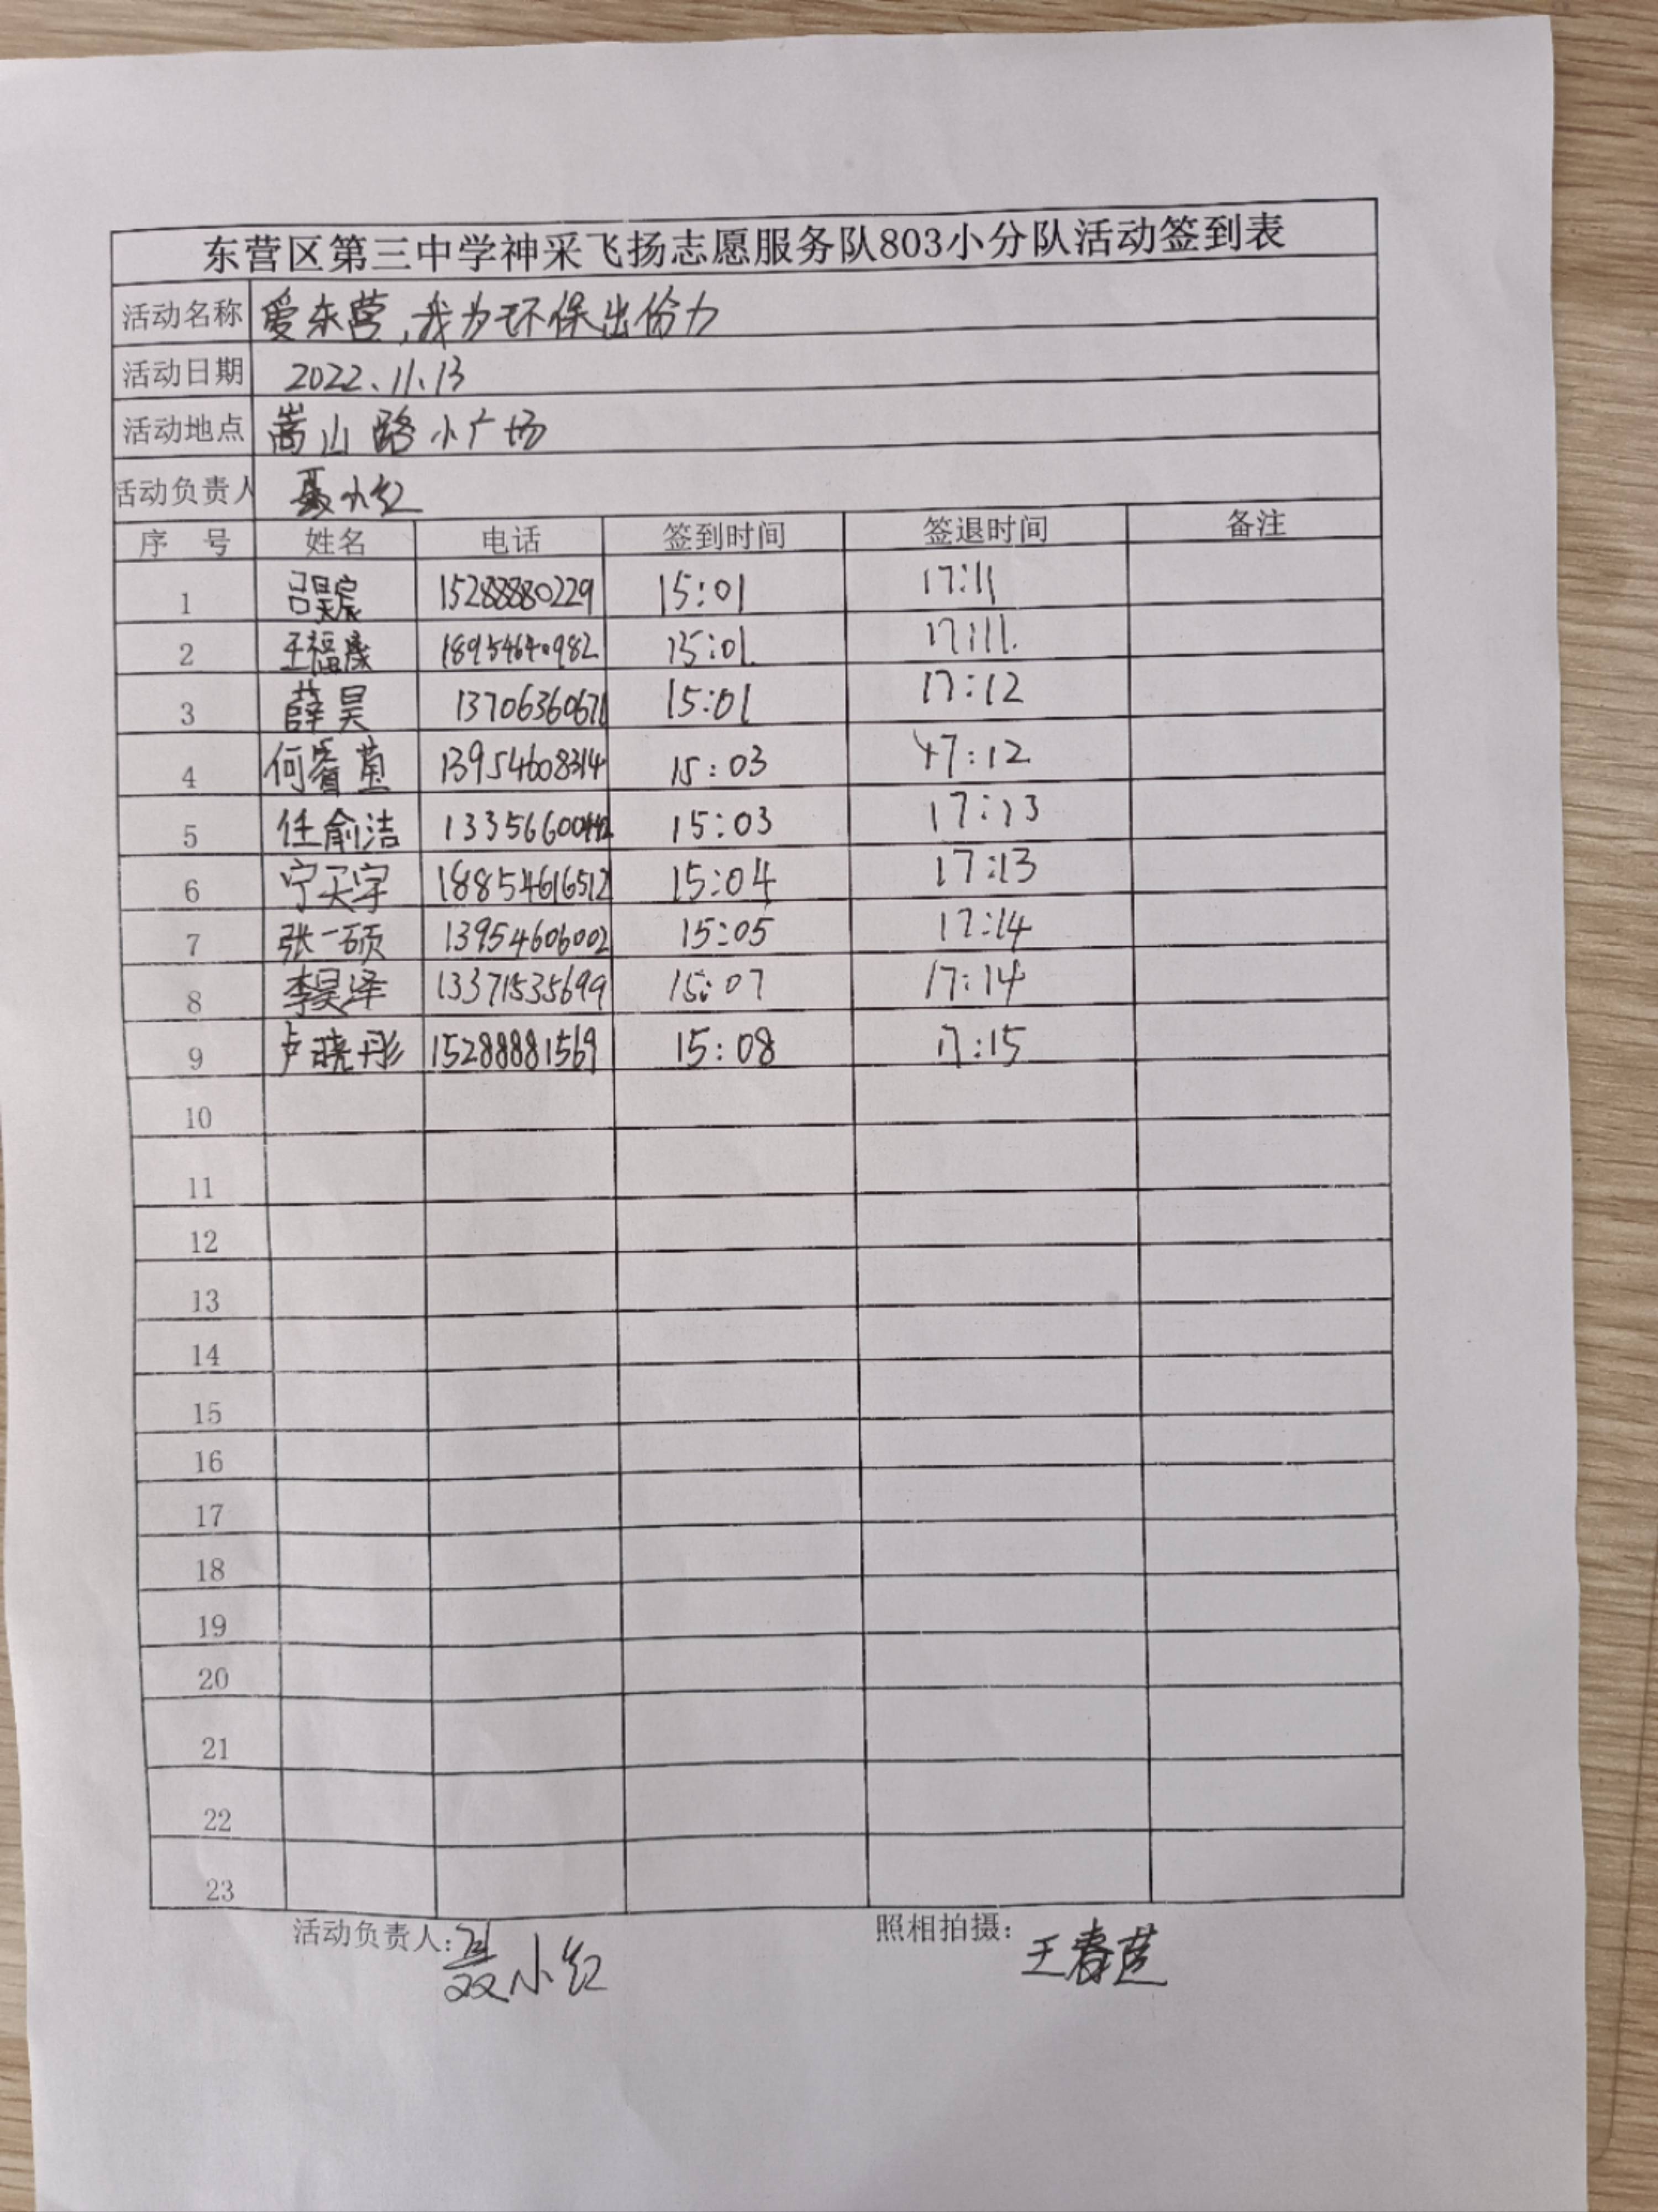 东营区第三中学神采飞扬志愿服务队803小分队活动签到表
活动名称 爱东营,我为环保出份力
活动日期 2022.11.13
活动地点 嵩山路小广场
活动负责人 聂小红
序 号 姓名 电话 签到时间 签退时间 备注
1 吕昊宸 15288880229 15:01 17:11
2 王福 18954640982 15:01 17:11
3 薛昊 13706360671 15:01 17:12
4 何睿 13954608314 15:03 17:12
5 任俞洁 15:03 17:13
6 宁天宇 18854616512 15:04 17:13
7 张一硕 13954606002 15:05 17:14
8 李昊泽 13371535699 15:07 17:14
9 卢晓彤 15288881569 15:08 17:15
10
11
12
13
14
15
16
17
18
19
20
21
22
23
活动负责人: 聂小红 照相拍摄: 王春苗